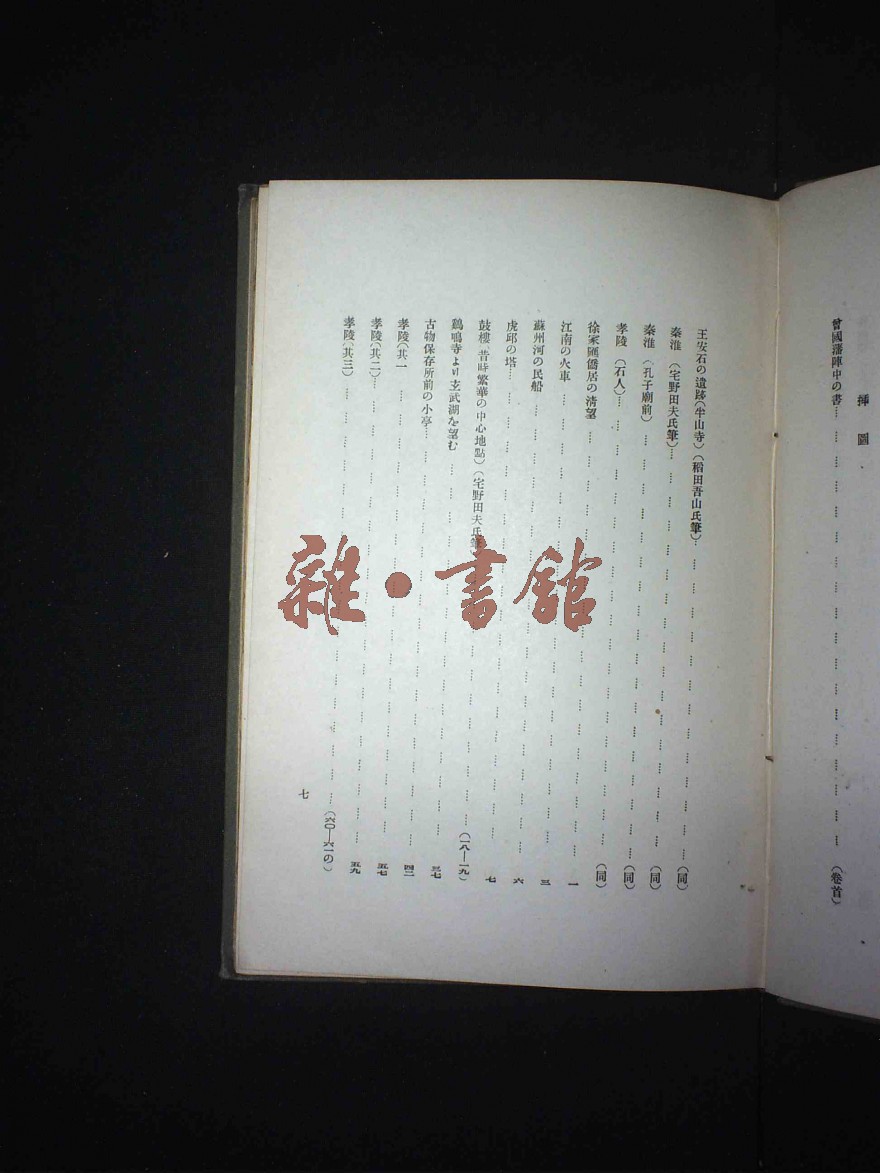 挿圖
曾國藩陣中の書……(卷首)
王安石の遺跡(半山寺)(稻田吾山氏筆)……(同)
秦淮 (宅野田夫氏筆)……(同)
秦淮 (孔子廟前)……(同)
孝陵 (石人)……(同)
徐家匯僑居の清望……一
江南の火車……三
蘇州河の民船……六
虎邱の塔……七
鼓樓(昔時繁華の中心地點)(宅野田夫氏筆)……(一八—一九)
鷄鳴寺より玄武湖を望む……三七
古物保存所前の小亭……四二
孝陵(其一……五七
孝陵(其二)……五九
孝陵(其三)……(六〇—六一の)
七
雜·書館